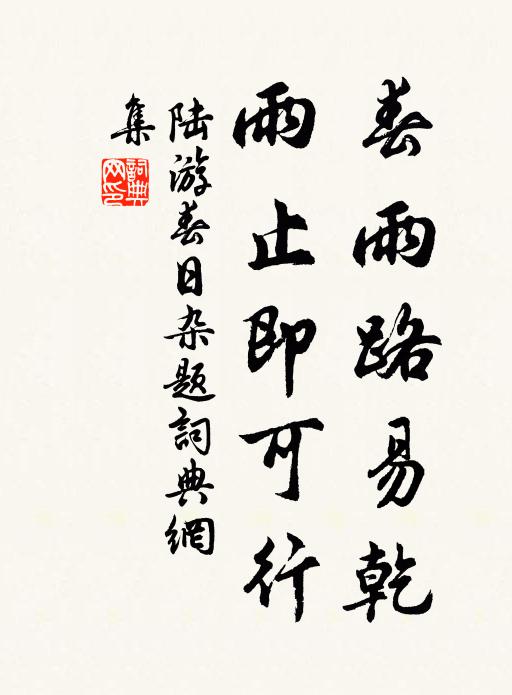 春雨路易乾
雨止即可行
陆游春日杂题詞典網
集
詞典网印